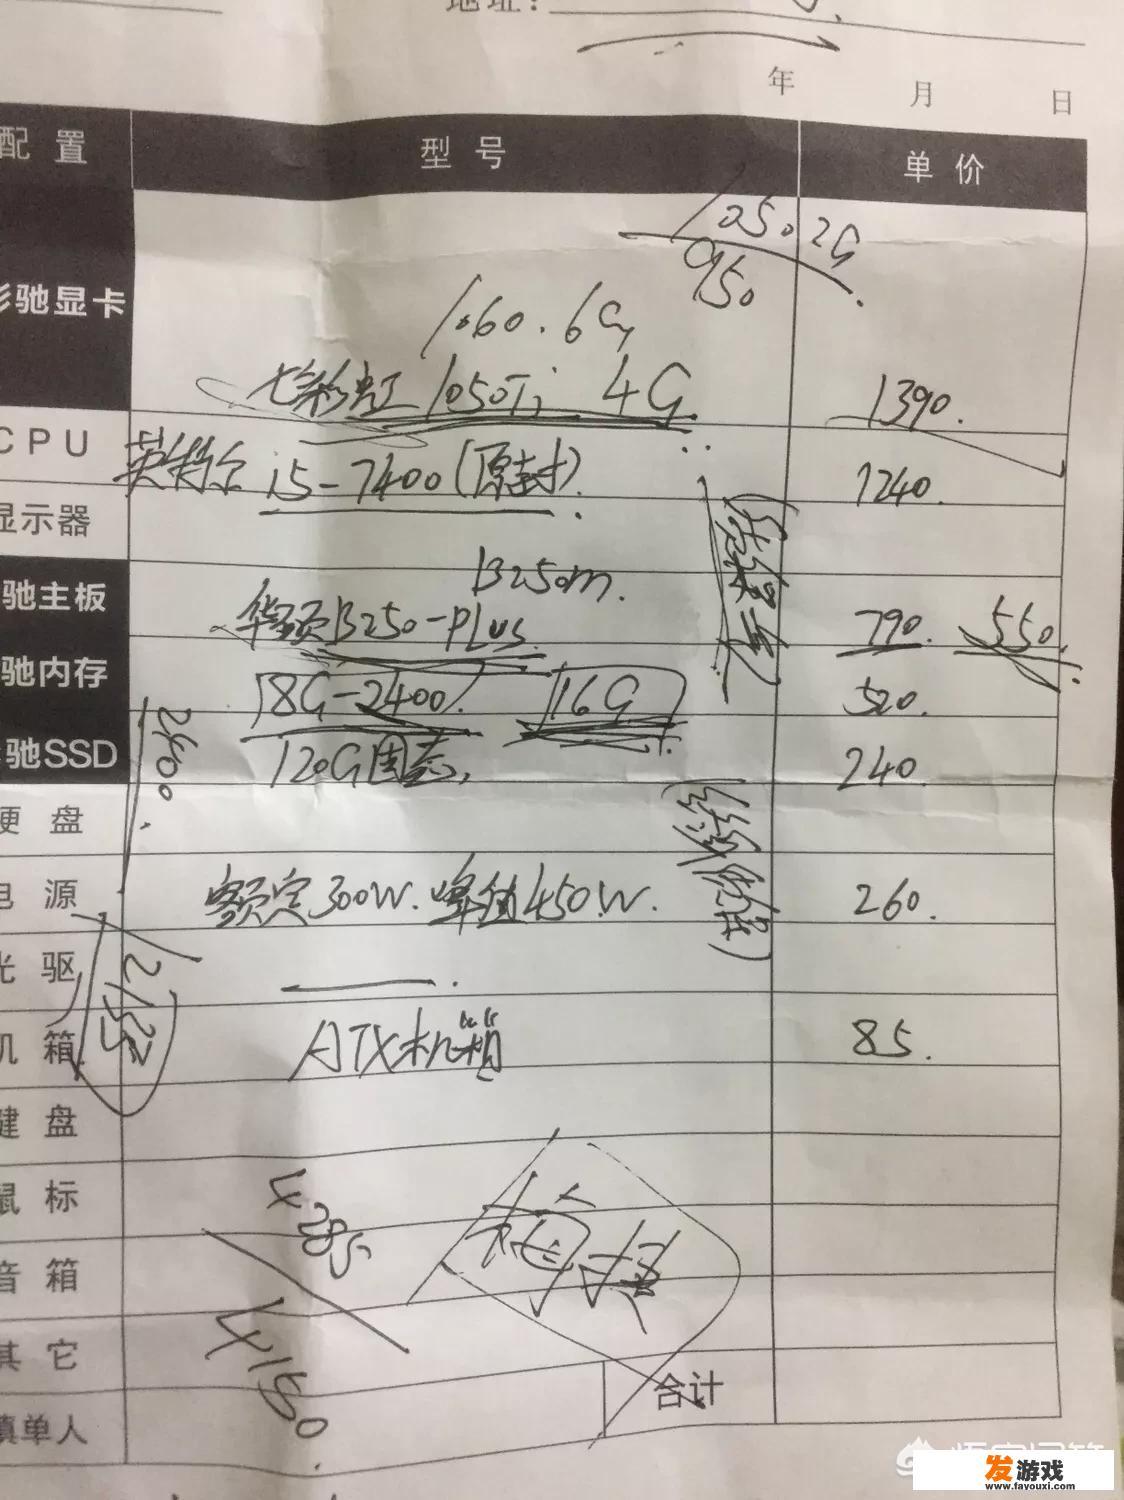 地址：
年 月 日
配 置 型 号 单 价
1050.2G
950
1060.6G
驰显卡 七彩虹 1050Ti 4G 1390.
CPU 英特尔 i5-7400(原封). 1240.
显示器
B250m.
驰主板 华硕B250-Plus 790. 550.
驰内存 8G-2400. 16G 520.
驰SSD 120G固态. 240
硬 盘
2400.
电 源 额定300W.峰值450W. 260.
光 驱
机 箱 ATX机箱 85.
键 盘
鼠 标
4285
音 箱
其 它
4150.
填单人 合计
发游戏
www.fayouxi.com